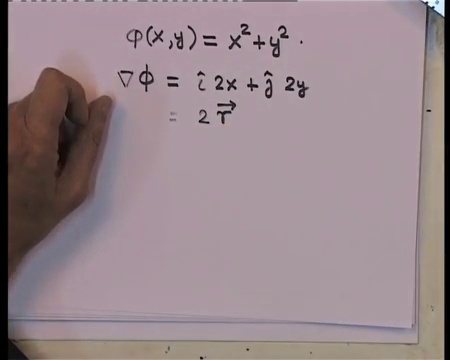 φ(x,y) = x² + y².
∇φ = î 2x + ĵ 2y
= 2 r⃗